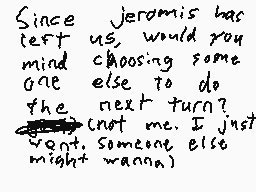 Since jeromis has
left us, would you
mind choosing some
one else to do
the next turn?
(not me. I just
went. someone else
might wanna)